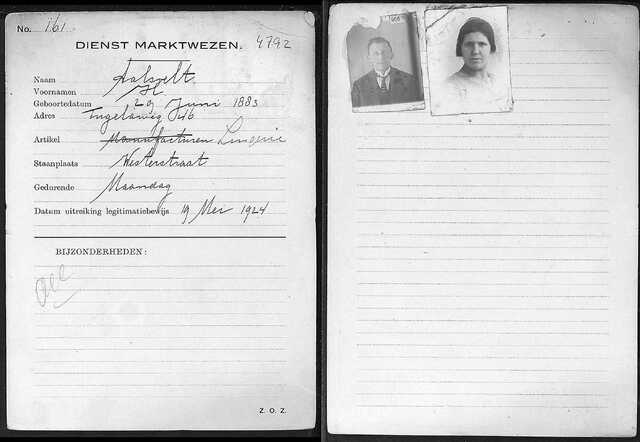 No. 161
DIENST MARKTWEZEN. 4792
Naam Aalsvelt
Voornamen H
Geboortedatum 29 Juni 1883
Adres 46
Artikel Manufacturen Lingerie
Staanplaats Westerstraat
Gedurende Maandag
Datum uitreiking legitimatiebewijs 19 Mei 1924
BIJZONDERHEDEN:
Z. O. Z.